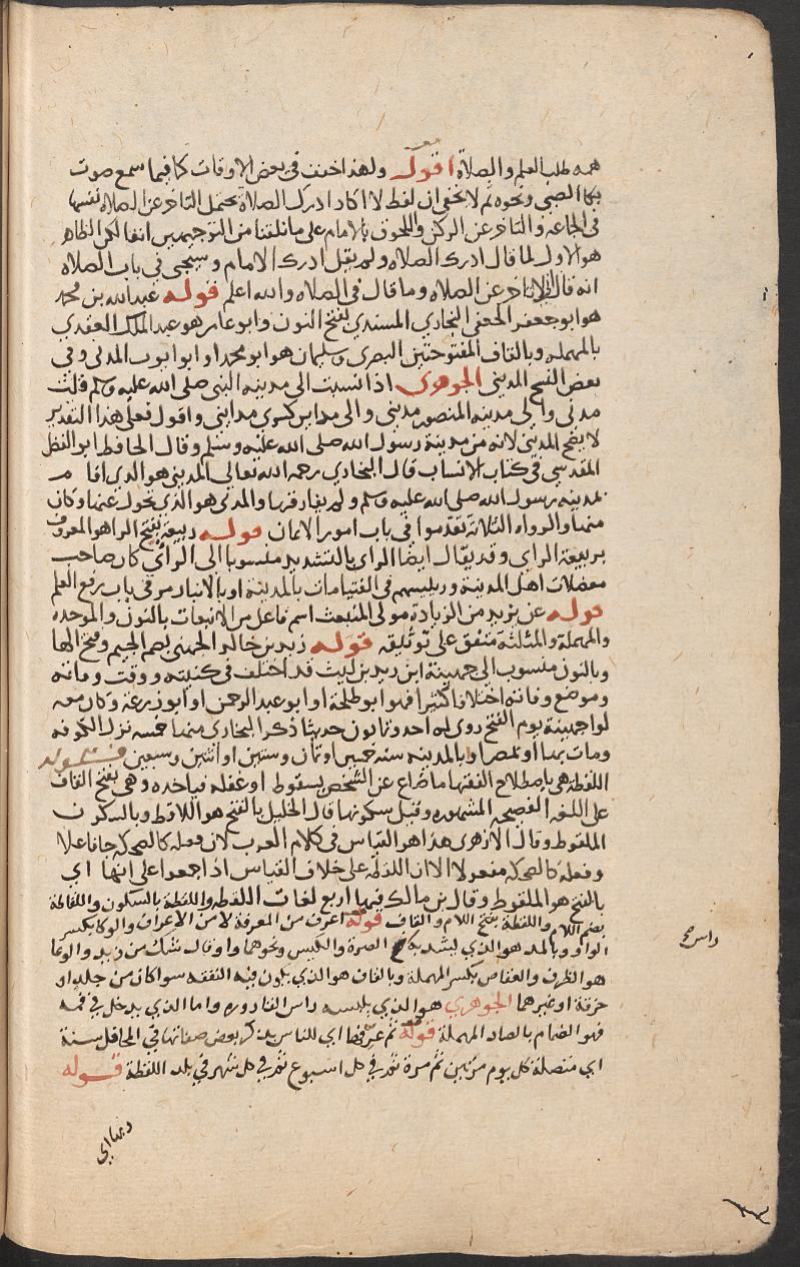 همه طلب العلم والصلاة اقول ولهذا خفف في بعض الاوقات كما فيما سمع صوت
بكا الصبي ونحوه ثم لا يخفى ان لفظ لا اكاد ادرك الصلاة يحتمل التاخر عن الصلاة نفسها
في الجماعة والتاخر عن الركن واللحوق بالامام على ما نلقنا من التوجيهين انفا لكن الظاهر
هو الاول لما قال ادرك الصلاه ولم يقل ادرك الامام وسيجي في باب الصلاه
انه قال اني لاتاخر عن الصلاه وما قال في الصلاه والله اعلم قوله عبدالله بن محمد
هو ابو جعفر الجعفي البخاري المسندي بفتح النون وابو عامر هو عبد الملك العقدي
بالمهمله وبالقاف المفتوحتين البصري وسليمان هو ابو محمد او ابو ايوب المدني وفي
بعض النسخ المديني الجوهري اذا نسبت الى مدينه النبي صلى الله عليه وسلم قلت
مدني والى مدينه المنصور مديني والى مداين كسرى مدايني واقول فعلى هذا التقدير
لا يصح المديني لانه من مدينة رسول الله صلى الله عليه وسلم وقال الحافظ ابو الفضل
المقدسي في كتاب الانساب قال البخاري رحمه الله تعالى المديني هو الذي اقام
بمدينه رسول الله صلى الله عليه وسلم ولم يفارقها والمدني هو الذي تحول عنها وكان
منها والرواه الثلاثة تقدموا في باب امور الايمان قوله ربيعة بفتح الرا هو المعروف
بربيعة الراي وقد يقال ايضا الراي بالتشديد منسوبا الى الرائي كان صاحب
معضلات اهل المدينة وريسهم في الفتيا مات بالمدينة او بالانبار مر في باب رفع العلم
قوله عن يزيد من الزيادة مولى المنبعث اسم فاعل من الانبعاث بالنون والموحده
والمهملة والمثلثة متفق على توثيقه قوله زيد بن خالد الجهني بضم الجيم وفتح الها
وبالنون منسوب الى جهينة ابن زيد بن ليث قد اختلف في كنيته ووقت وفاته
وموضع وفاته اختلافا كثيرا فهو ابو طلحة او ابو عبد الرحمن او ابو زرعة وكان معه
لوا جهينة يوم الفتح روي له احد وثمانون حديثا ذكر البخاري منها خمسه نزل الكوفه
ومات بها او بمصر او بالمدينه سنه خمسين او ثمان وستين او اثنتين وسبعين قوله
اللقطه هي باصطلاح الفقها ما ضاع عن الشخص بسقوط او غفله فياخده وهي بفتح القاف
على اللغه الفصيحه المشهوره وقيل بسكونها قال الخليل بالفتح هو اللاقط وبالسكون
الملقوط وقال الازهري هذا هو القياس في كلام العرب لان فعله كالضحكه جا فاعلا
وفعله كالضحكه مفعولا الا ان اللقطه على خلاف القياس اذ اجمعوا على انها اي
بالفتح هو الملقوط وقال بن مالك فيها اربع لغات اللقطه واللقطة بالسكون واللقاطة
بضم اللام واللقطة بفتح اللام والقاف قوله اعرف من المعرفة لا من الاعراف والوكا بكسر
الواو وبالمد هو الذي يشد به راس الصرة والكيس ونحوهما واو قال شك من زيد والوعا
هو الظرف والعفاص بكسر المهملة وبالفاف هو الذي يكون فيه النفقه سوا كان من جلد او
خرقة او غيرهما الجوهري هو الذي يلبسه راس القاروره واما الذي يدخل في فمه
فهو الصمام بالصاد المهملة قوله ثم عرفها اي للناس بذكر بعض صفاتها في المحافل سنة
اي متصلة كل يوم مرتين ثم مرة ثم في كل اسبوع ثم في كل شهر في بلد اللقطة قوله
راس صح